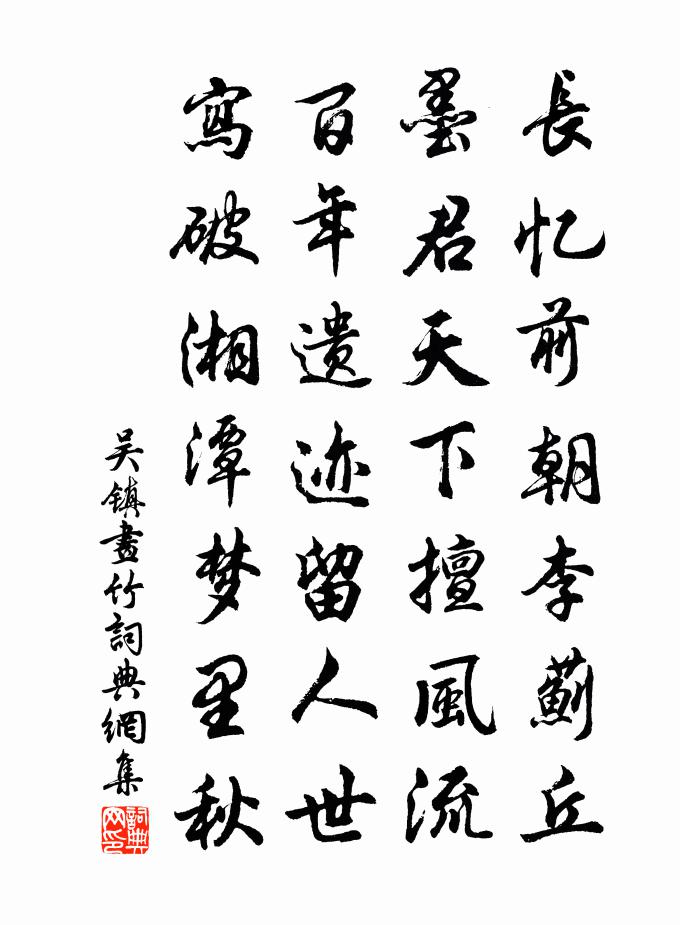 長忆前朝李薊丘
墨君天下擅風流
百年遗迹留人世
寫破湘潭梦里秋
吴镇畫竹詞典網集
詞典网印